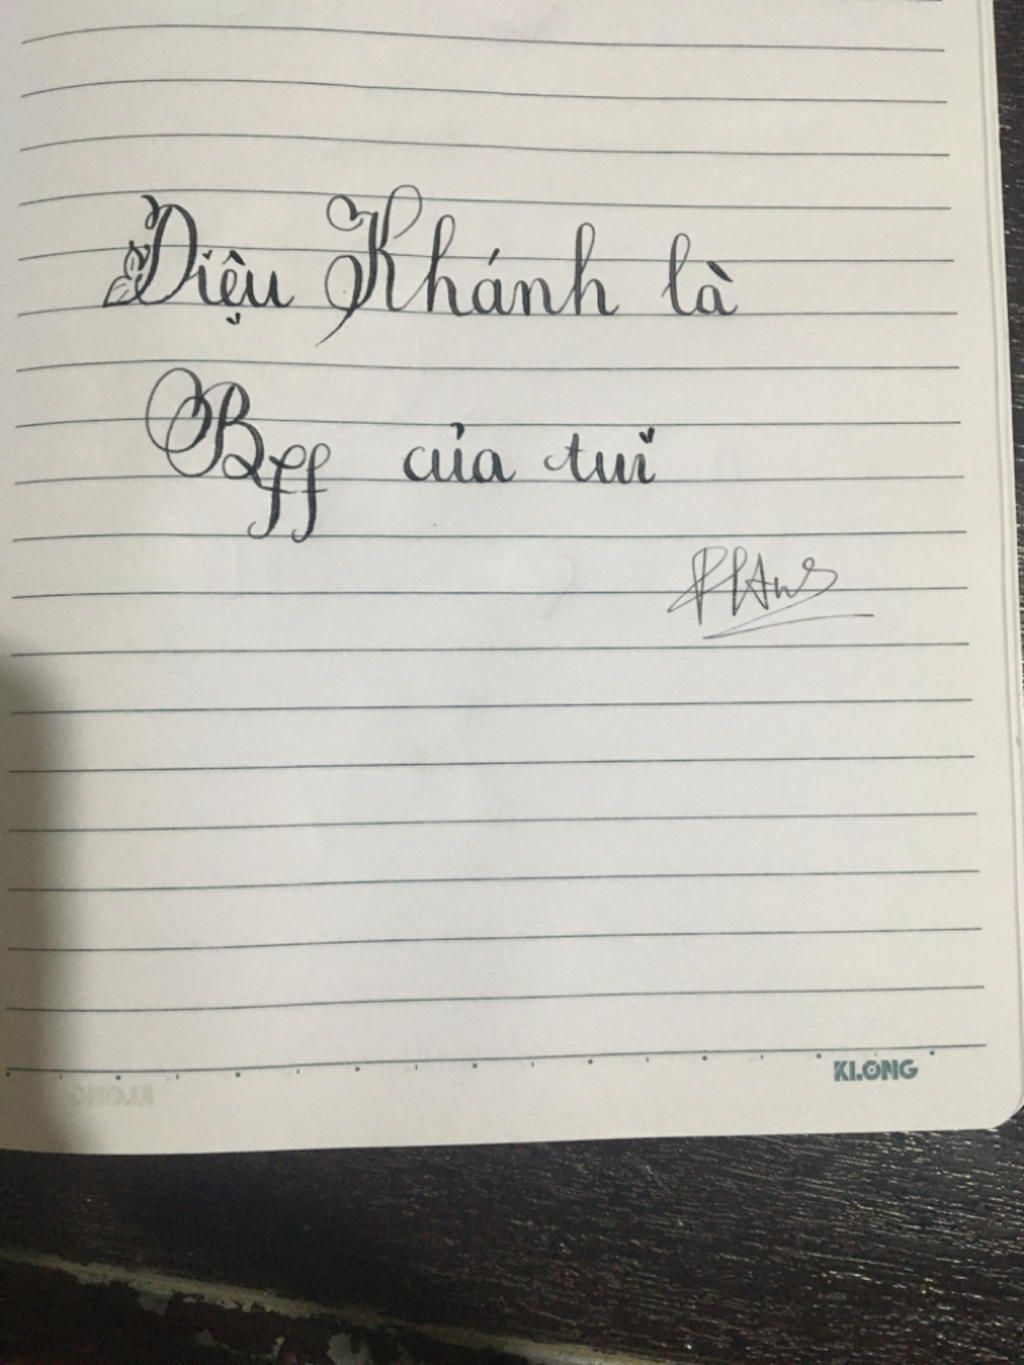 Diệu Khánh là
Bff của tui
KLONG